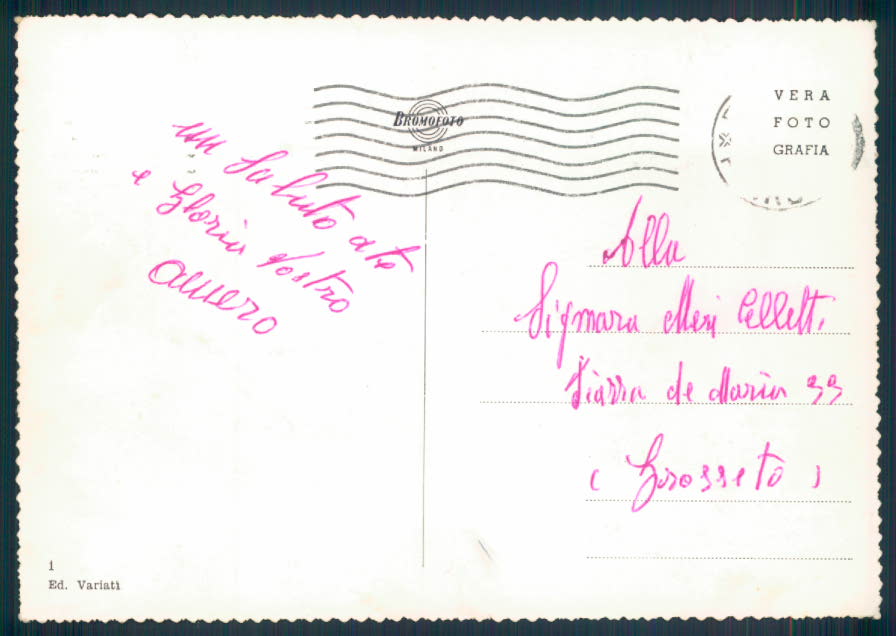 un saluto a te
e Gloria vostro
Amero
BROMOFOTO
MILANO
VERA
FOTO
GRAFIA
Alla
Sigmara Meri Celletti
Piazza de Maria 33
(Grosseto)
1
Ed. Variati